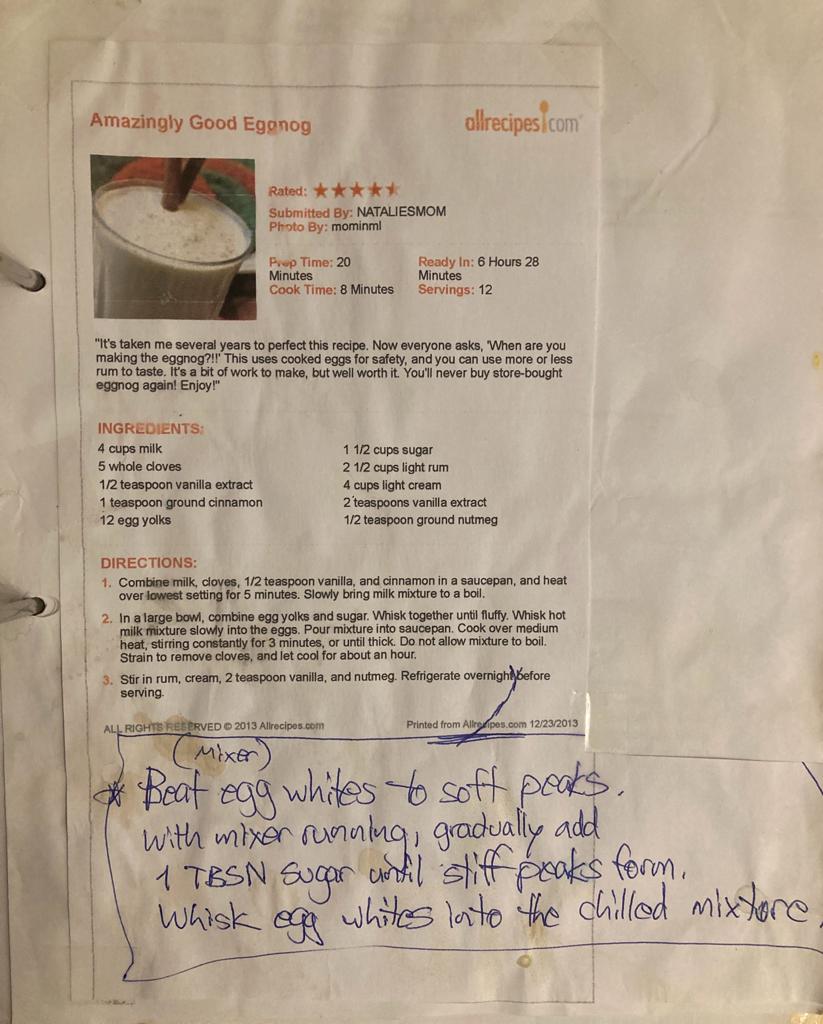 Amazingly Good Eggnog
allrecipes.com
Rated:
Submitted By: NATALIESMOM
Photo By: mominml
Prep Time: 20
Minutes
Cook Time: 8 Minutes
Ready In: 6 Hours 28
Minutes
Servings: 12
"It's taken me several years to perfect this recipe. Now everyone asks, 'When are you
making the eggnog?!!' This uses cooked eggs for safety, and you can use more or less
rum to taste. It's a bit of work to make, but well worth it. You'll never buy store-bought
eggnog again! Enjoy!"
INGREDIENTS:
4 cups milk
5 whole cloves
1/2 teaspoon vanilla extract
1 teaspoon ground cinnamon
12 egg yolks
1 1/2 cups sugar
2 1/2 cups light rum
4 cups light cream
2 teaspoons vanilla extract
1/2 teaspoon ground nutmeg
DIRECTIONS:
1. Combine milk, cloves, 1/2 teaspoon vanilla, and cinnamon in a saucepan, and heat
over lowest setting for 5 minutes. Slowly bring milk mixture to a boil.
2. In a large bowl, combine egg yolks and sugar. Whisk together until fluffy. Whisk hot
milk mixture slowly into the eggs. Pour mixture into saucepan. Cook over medium
heat, stirring constantly for 3 minutes, or until thick. Do not allow mixture to boil.
Strain to remove cloves, and let cool for about an hour.
3. Stir in rum, cream, 2 teaspoon vanilla, and nutmeg. Refrigerate overnight before
serving.
ALL RIGHTS RESERVED © 2013 Allrecipes.com
Printed from Allrecipes.com 12/23/2013
(Mixer)
* Beat egg whites to soft peaks.
With mixer running, gradually add
1 TBSN sugar until stiff peaks form.
Whisk egg whites into the chilled mixture.